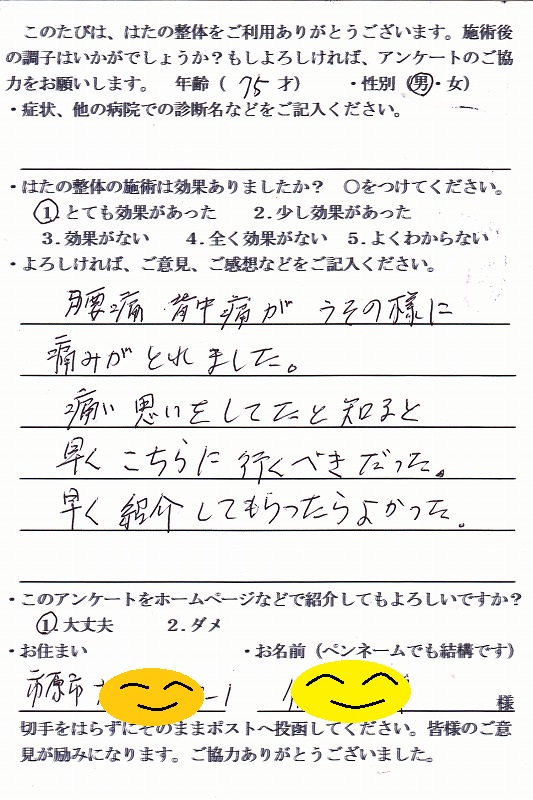 このたびは、はたの整体をご利用ありがとうございます。施術後
の調子はいかがでしょうか？もしよろしければ、アンケートのご協
力をお願いします。　年齢（ 75 才）　　・性別（男・女）
・症状、他の病院での診断名などをご記入ください。
・はたの整体の施術は効果ありましたか？　〇をつけてください。
1. とても効果があった　　2. 少し効果があった
3. 効果がない　　4. 全く効果がない　5. よくわからない
・よろしければ、ご意見、ご感想などをご記入ください。
腰痛 背中痛が うその様に
痛みがとれました。
痛い思いをしてたと知ると
早くこちらに行くべきだった。
早く紹介してもらったらよかった。
・このアンケートをホームページなどで紹介してもよろしいですか？
1. 大丈夫　　2. ダメ
・お住まい　　　　　　　・お名前（ペンネームでも結構です）
市原市 -1　　　様
切手をはらずにそのままポストへ投函してください。皆様のご意
見が励みになります。ご協力ありがとうございました。